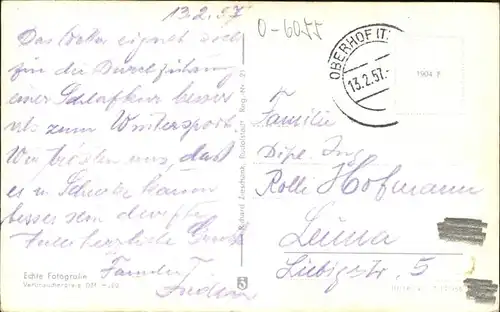 13.2.57
0-6055
Das Wetter eignet sich
für die Durchführung
einer Schlafkur besser
als zum Wintersport.
Wir trösten uns, daß
es in Schweiz kaum
besser sein dürfte
Herzliche Grüße
Familie
OBERHOF (T
13.2.57.-
1904 F
Familie
Dipl. Ing
Rolli Hofmann
Leuna
Liebigstr. 5
Echte Fotografie
Verbraucherpreis DM
Rudolstadt Reg.-Nr. 21